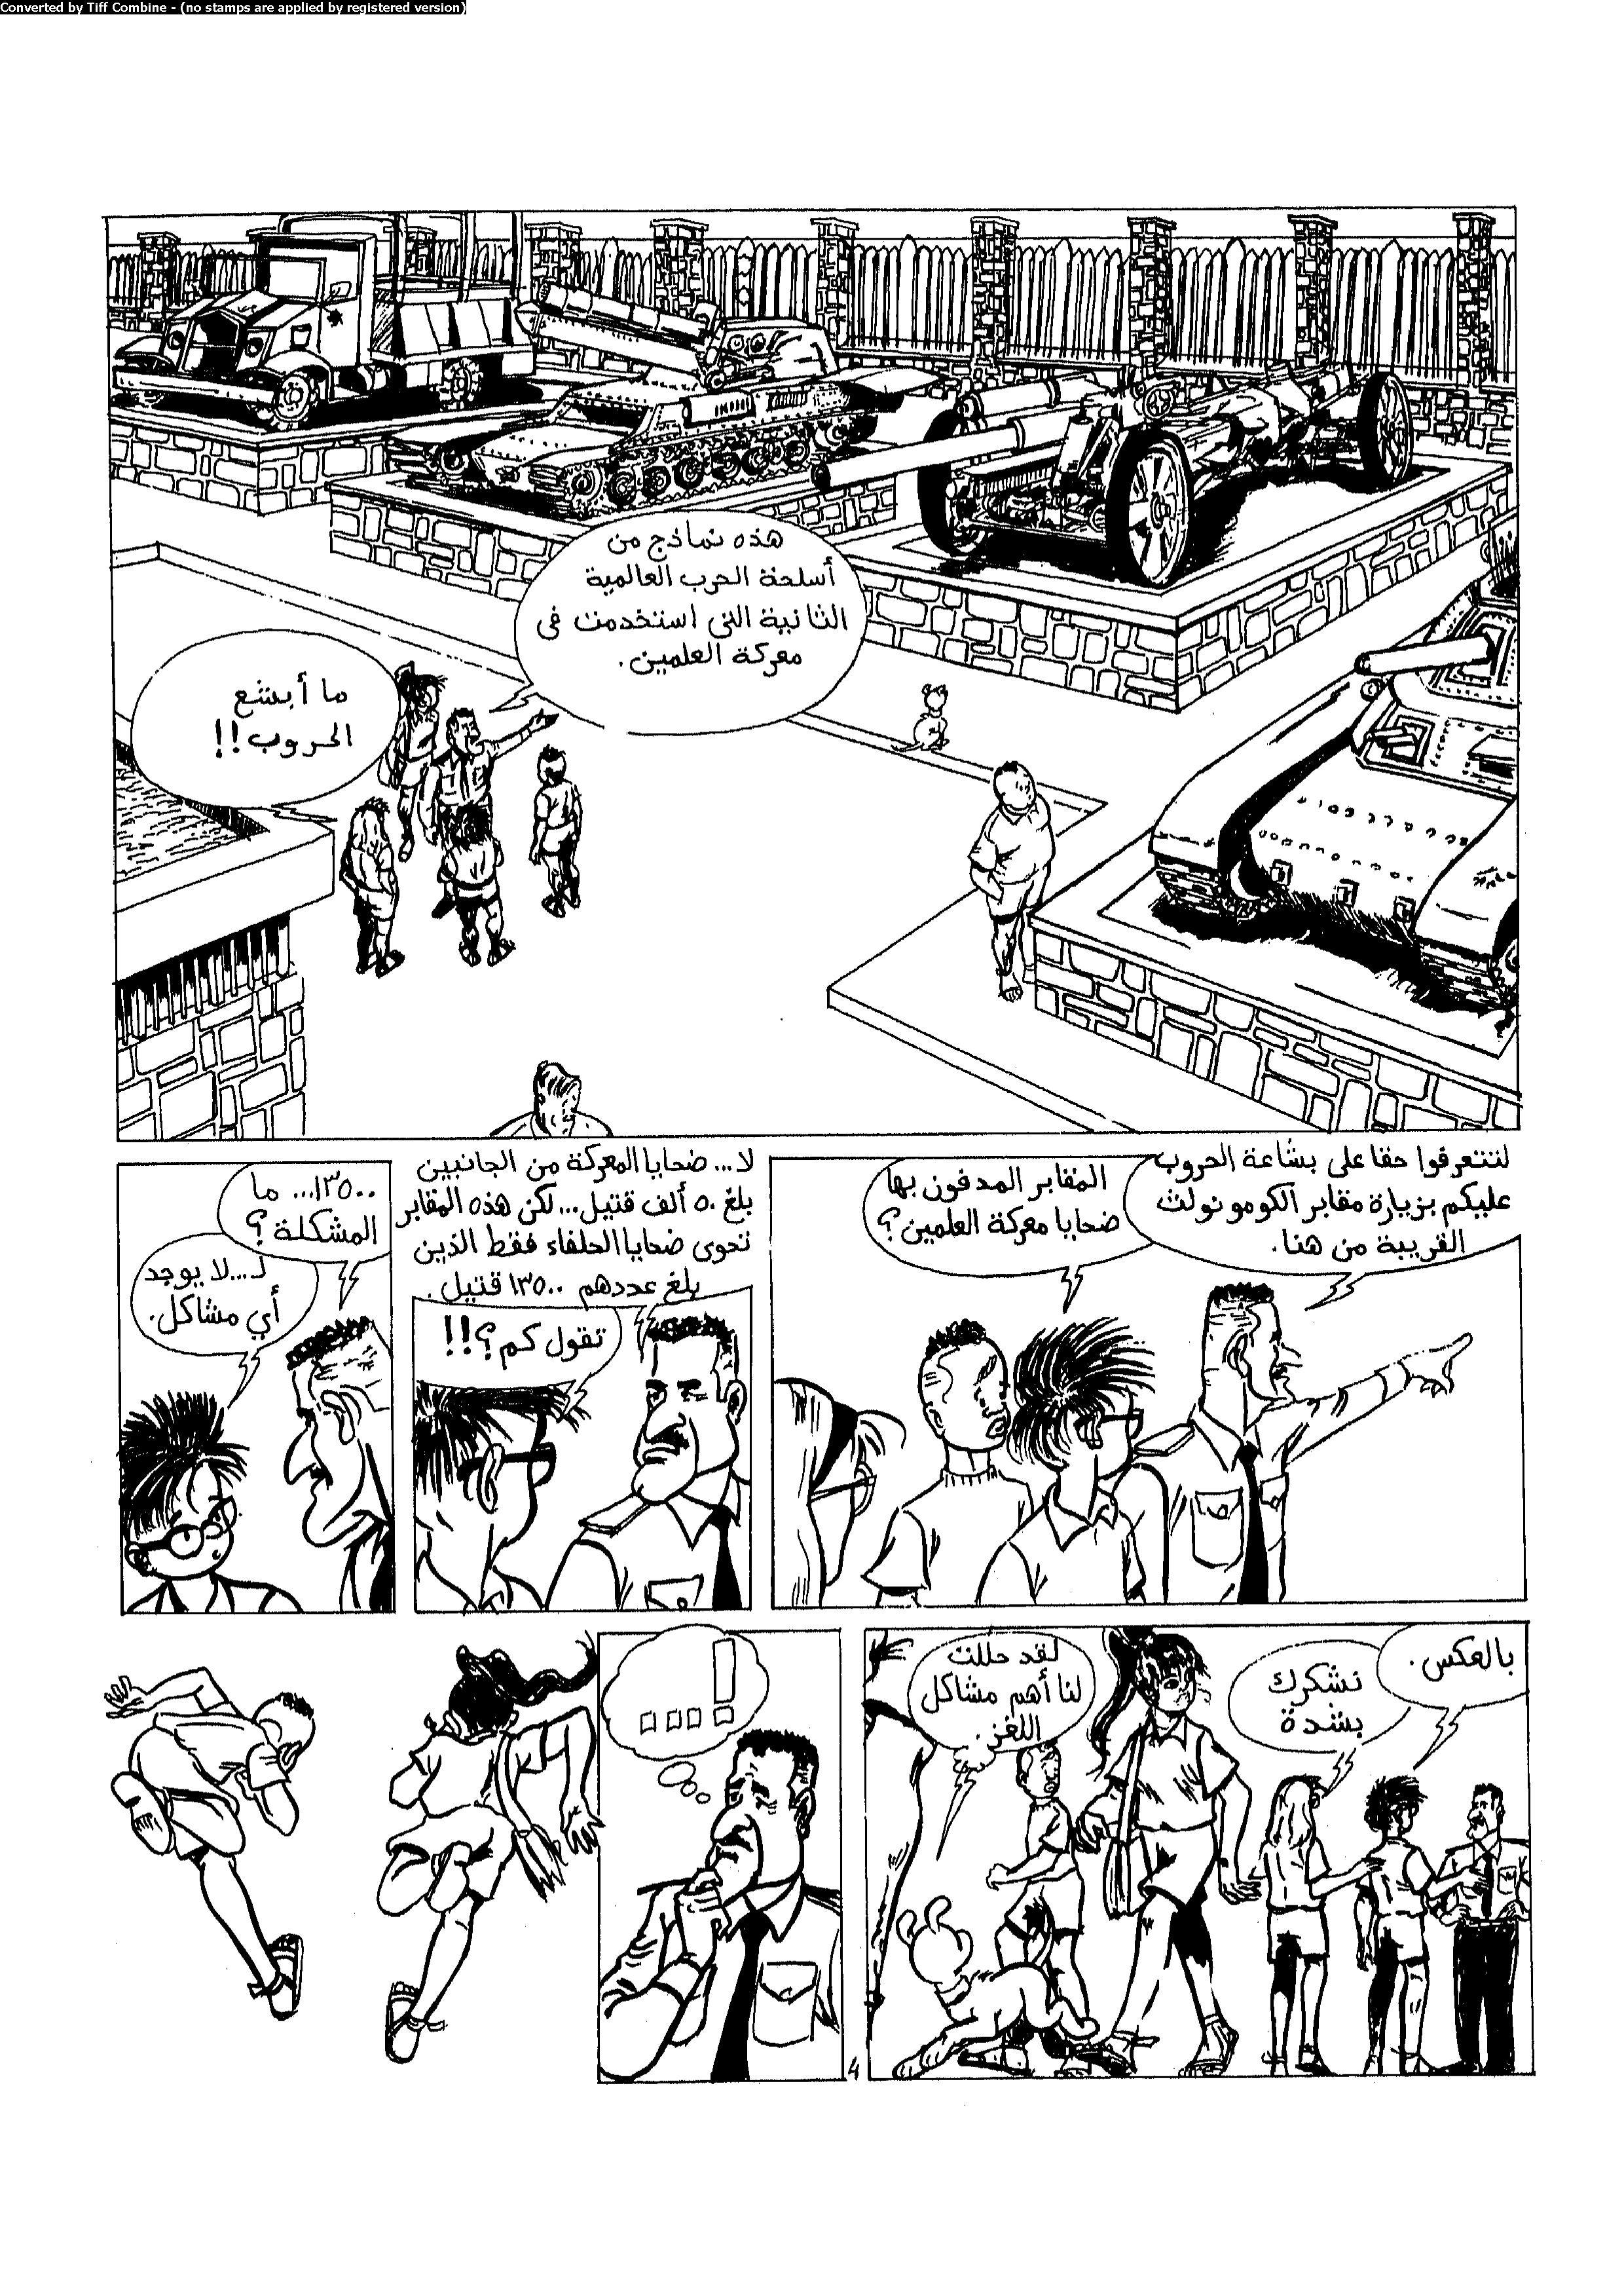 Converted by Tiff Combine - (no stamps are applied by registered version)
هذه نماذج من
أسلحة الحرب العالمية
الثانية التى استخدمت فى
معركة العلمين.
ما أبشع
الحروب!!
لتتعرفوا حقا على بشاعة الحروب
عليكم بزيارة مقابر الكومونولث
القريبة من هنا.
المقابر المدفون بها
ضحايا معركة العلمين؟
لا... ضحايا المعركة من الجانبين
بلغ ٥٠ ألف قتيل... لكن هذه المقابر
تحوى ضحايا الحلفاء فقط الذين
بلغ عددهم ١٣٥٠٠ قتيل.
تقول كم؟!!
١٣٥٠٠... ما
المشكلة؟
لـ... لا يوجد
أي مشاكل.
بالعكس.
نشكرك
بشدة
لقد حللت
لنا أهم مشاكل
اللغز.
....!
٤